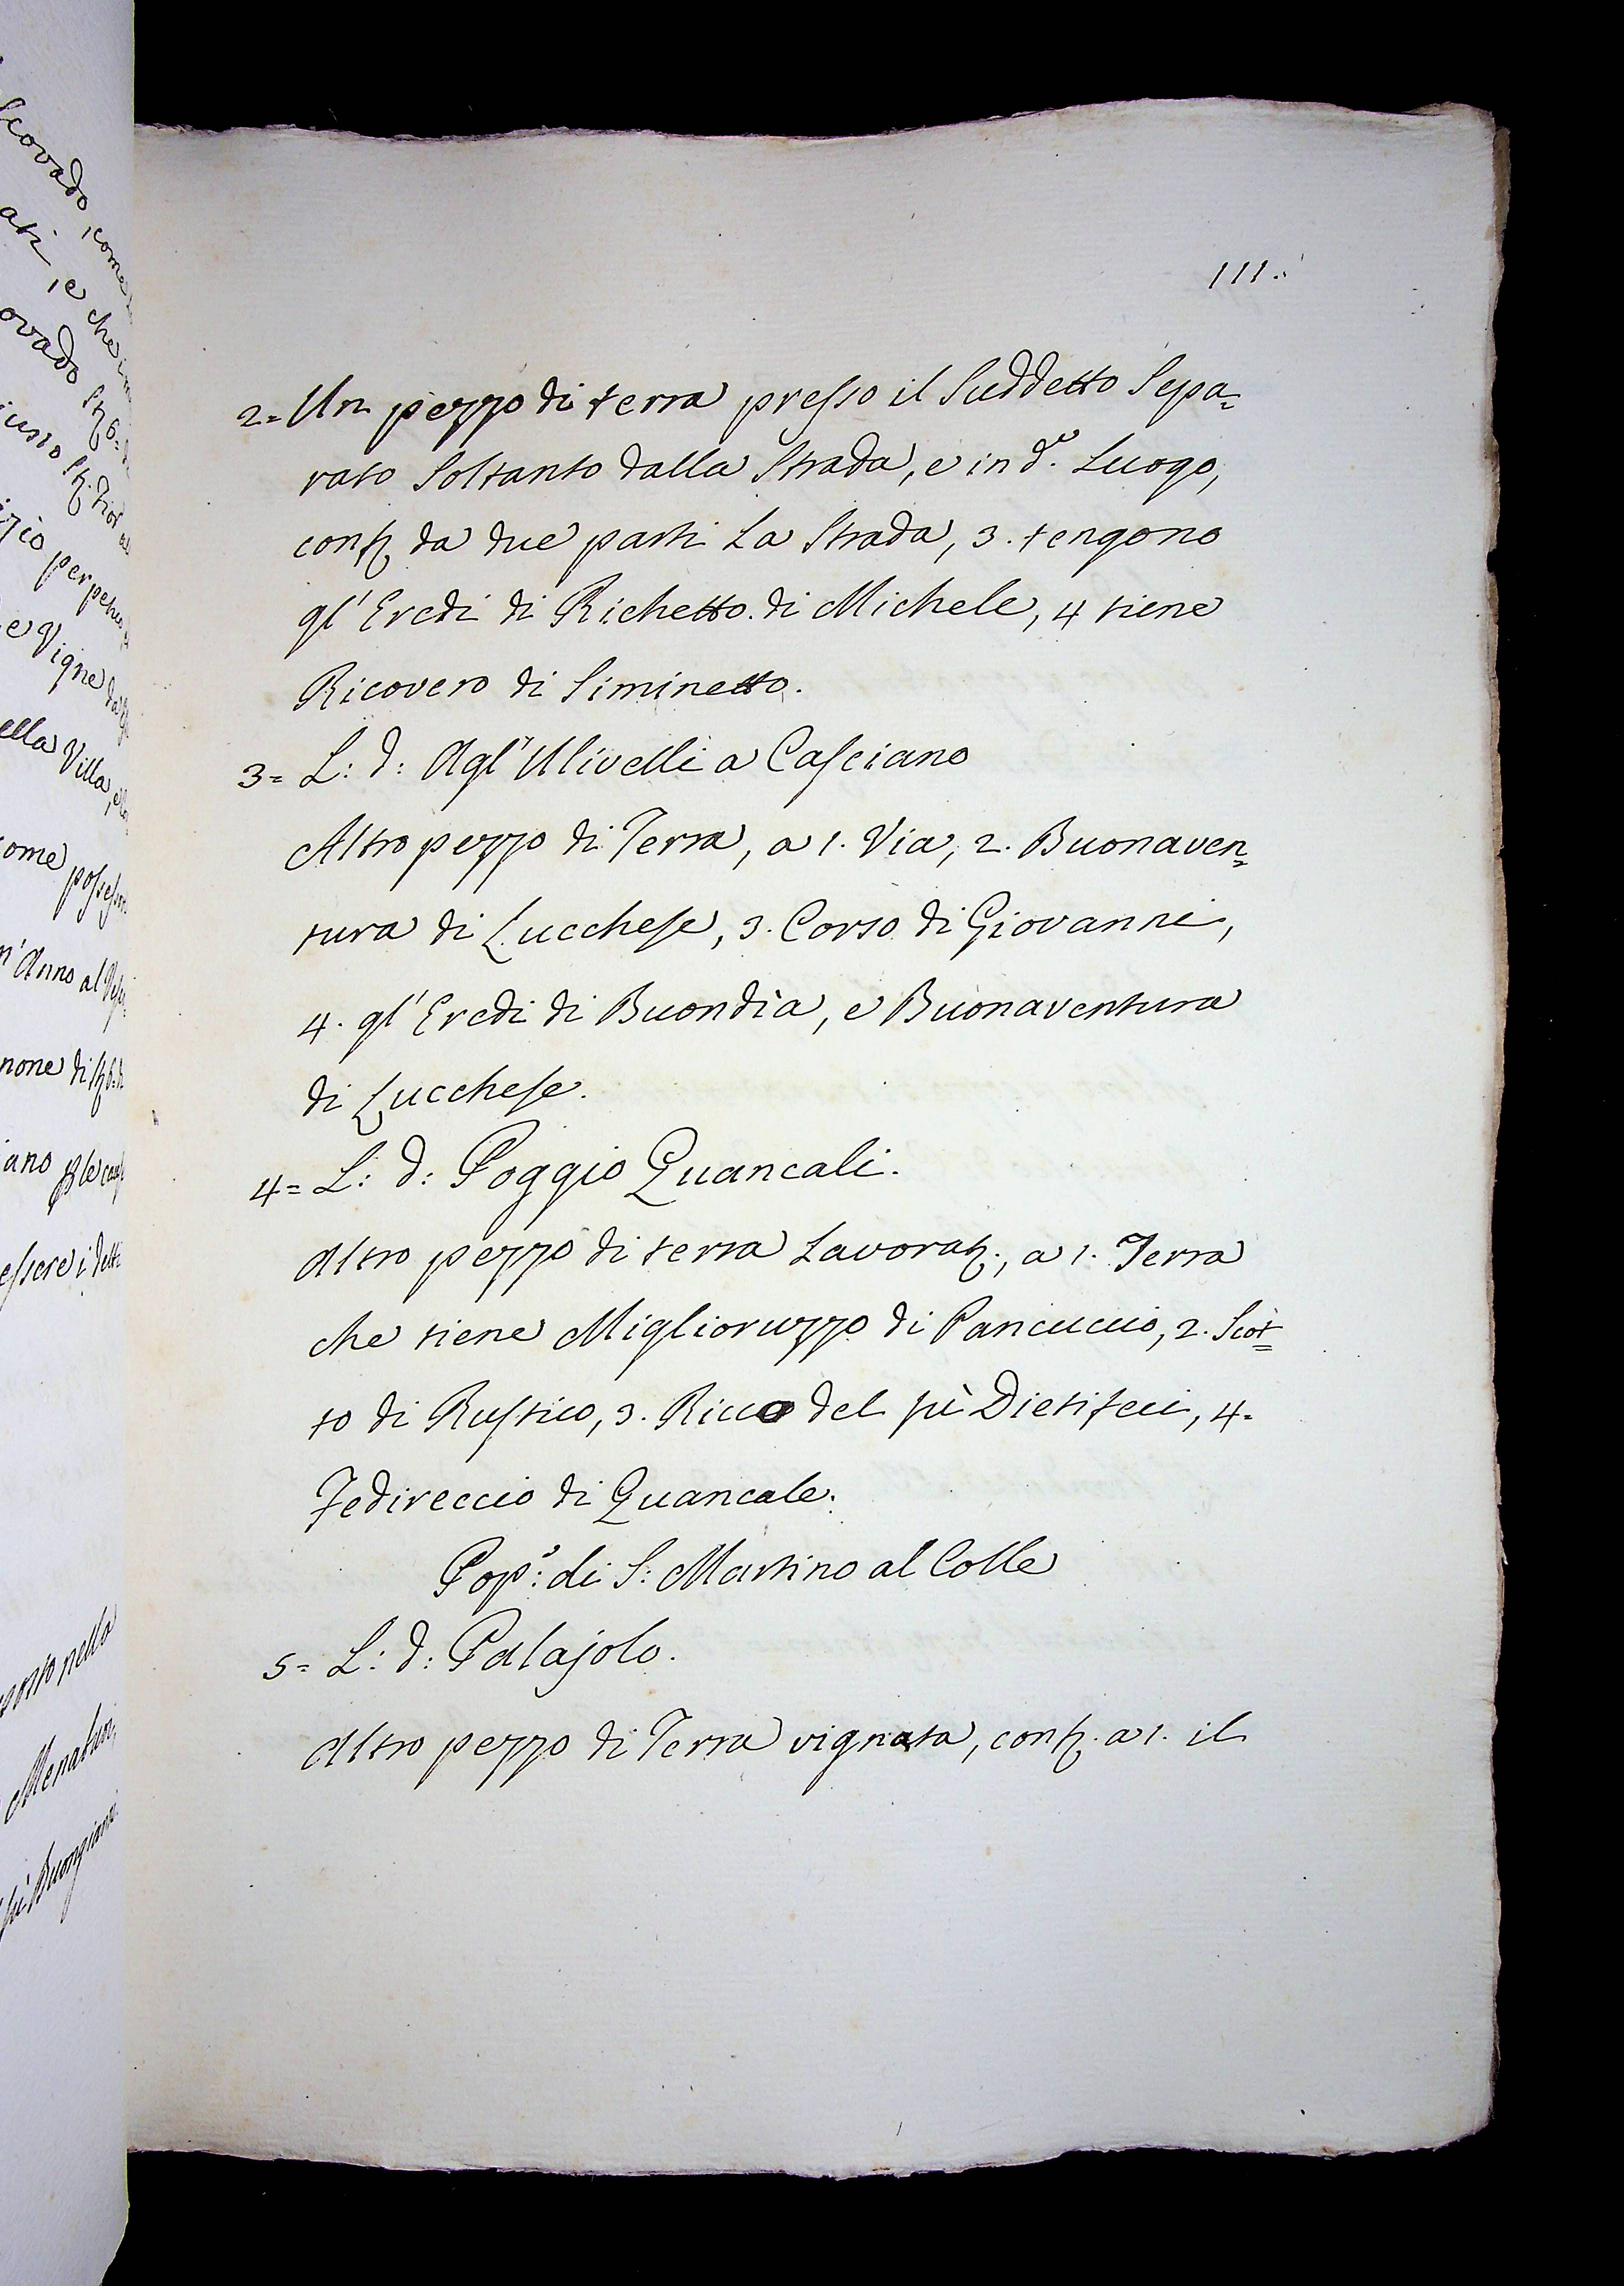 111.
2= Un pezzo di terra presso il Suddetto Sepa=
rato Soltanto dalla Strada, e in d.º Luogo,
conf. da due parti La Strada, 3. tengono
gl' Eredi di Richetto di Michele, 4 tiene
Ricovero di Siminetto.
3= L: d: Agl' Ulivelli a Casciano
Altro pezzo di Terra, a 1. Via, 2. Buonaven=
tura di Lucchese, 3. Corso di Giovanni,
4. gl' Eredi di Buondìa, e Buonaventura
di Lucchese.
4= L: d: Poggio Quancali.
Altro pezzo di terra Lavorat., a 1. Terra
che tiene Miglioruzzo di Pancuccio, 2. Scot=
to di Rustico, 3. Ricco del fù Dietifeci, 4.
Fedireccio di Quancale.
Pop.º: di S: Martino al Colle
5= L: d: Palajolo.
Altro pezzo di Terra vignata, conf. a 1. il
scovado, come
ati, e che
ovado
perpetuo
e Vigne
ella Villa,
ome
n' Anno al
none di
ano
essere i detti
nella
fù Buongianni